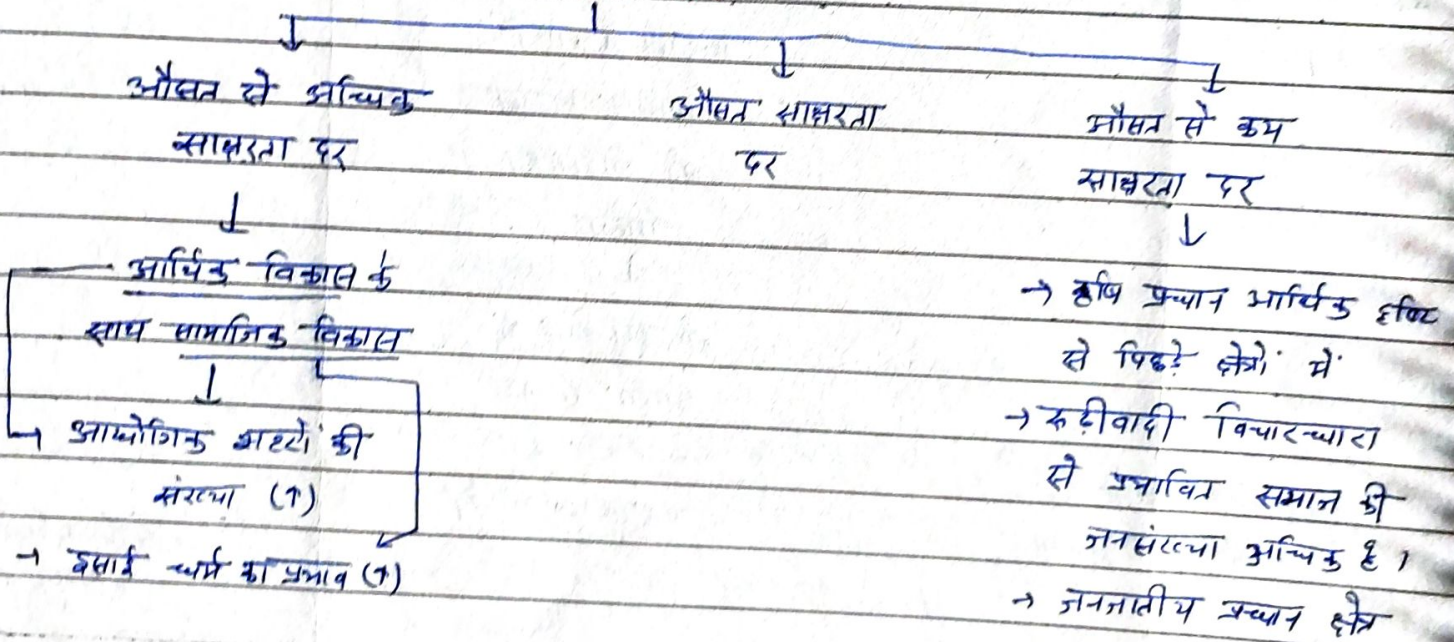 औसत से अधिक
साक्षरता दर
↓
आर्थिक विकास के
साथ सामाजिक विकास
↓
→ आद्योगिक शहरों की
संख्या (↑)
→ इसाई धर्म का प्रभाव (↑)
औसत साक्षरता
दर
औसत से कम
साक्षरता दर
↓
→ कृषि प्रधान आर्थिक दृष्टि
से पिछड़े क्षेत्रों में
→ रूढ़ीवादी विचारधारा
से प्रभावित समाज की
जनसंख्या अधिक है।
→ जनजातीय प्रधान क्षेत्र